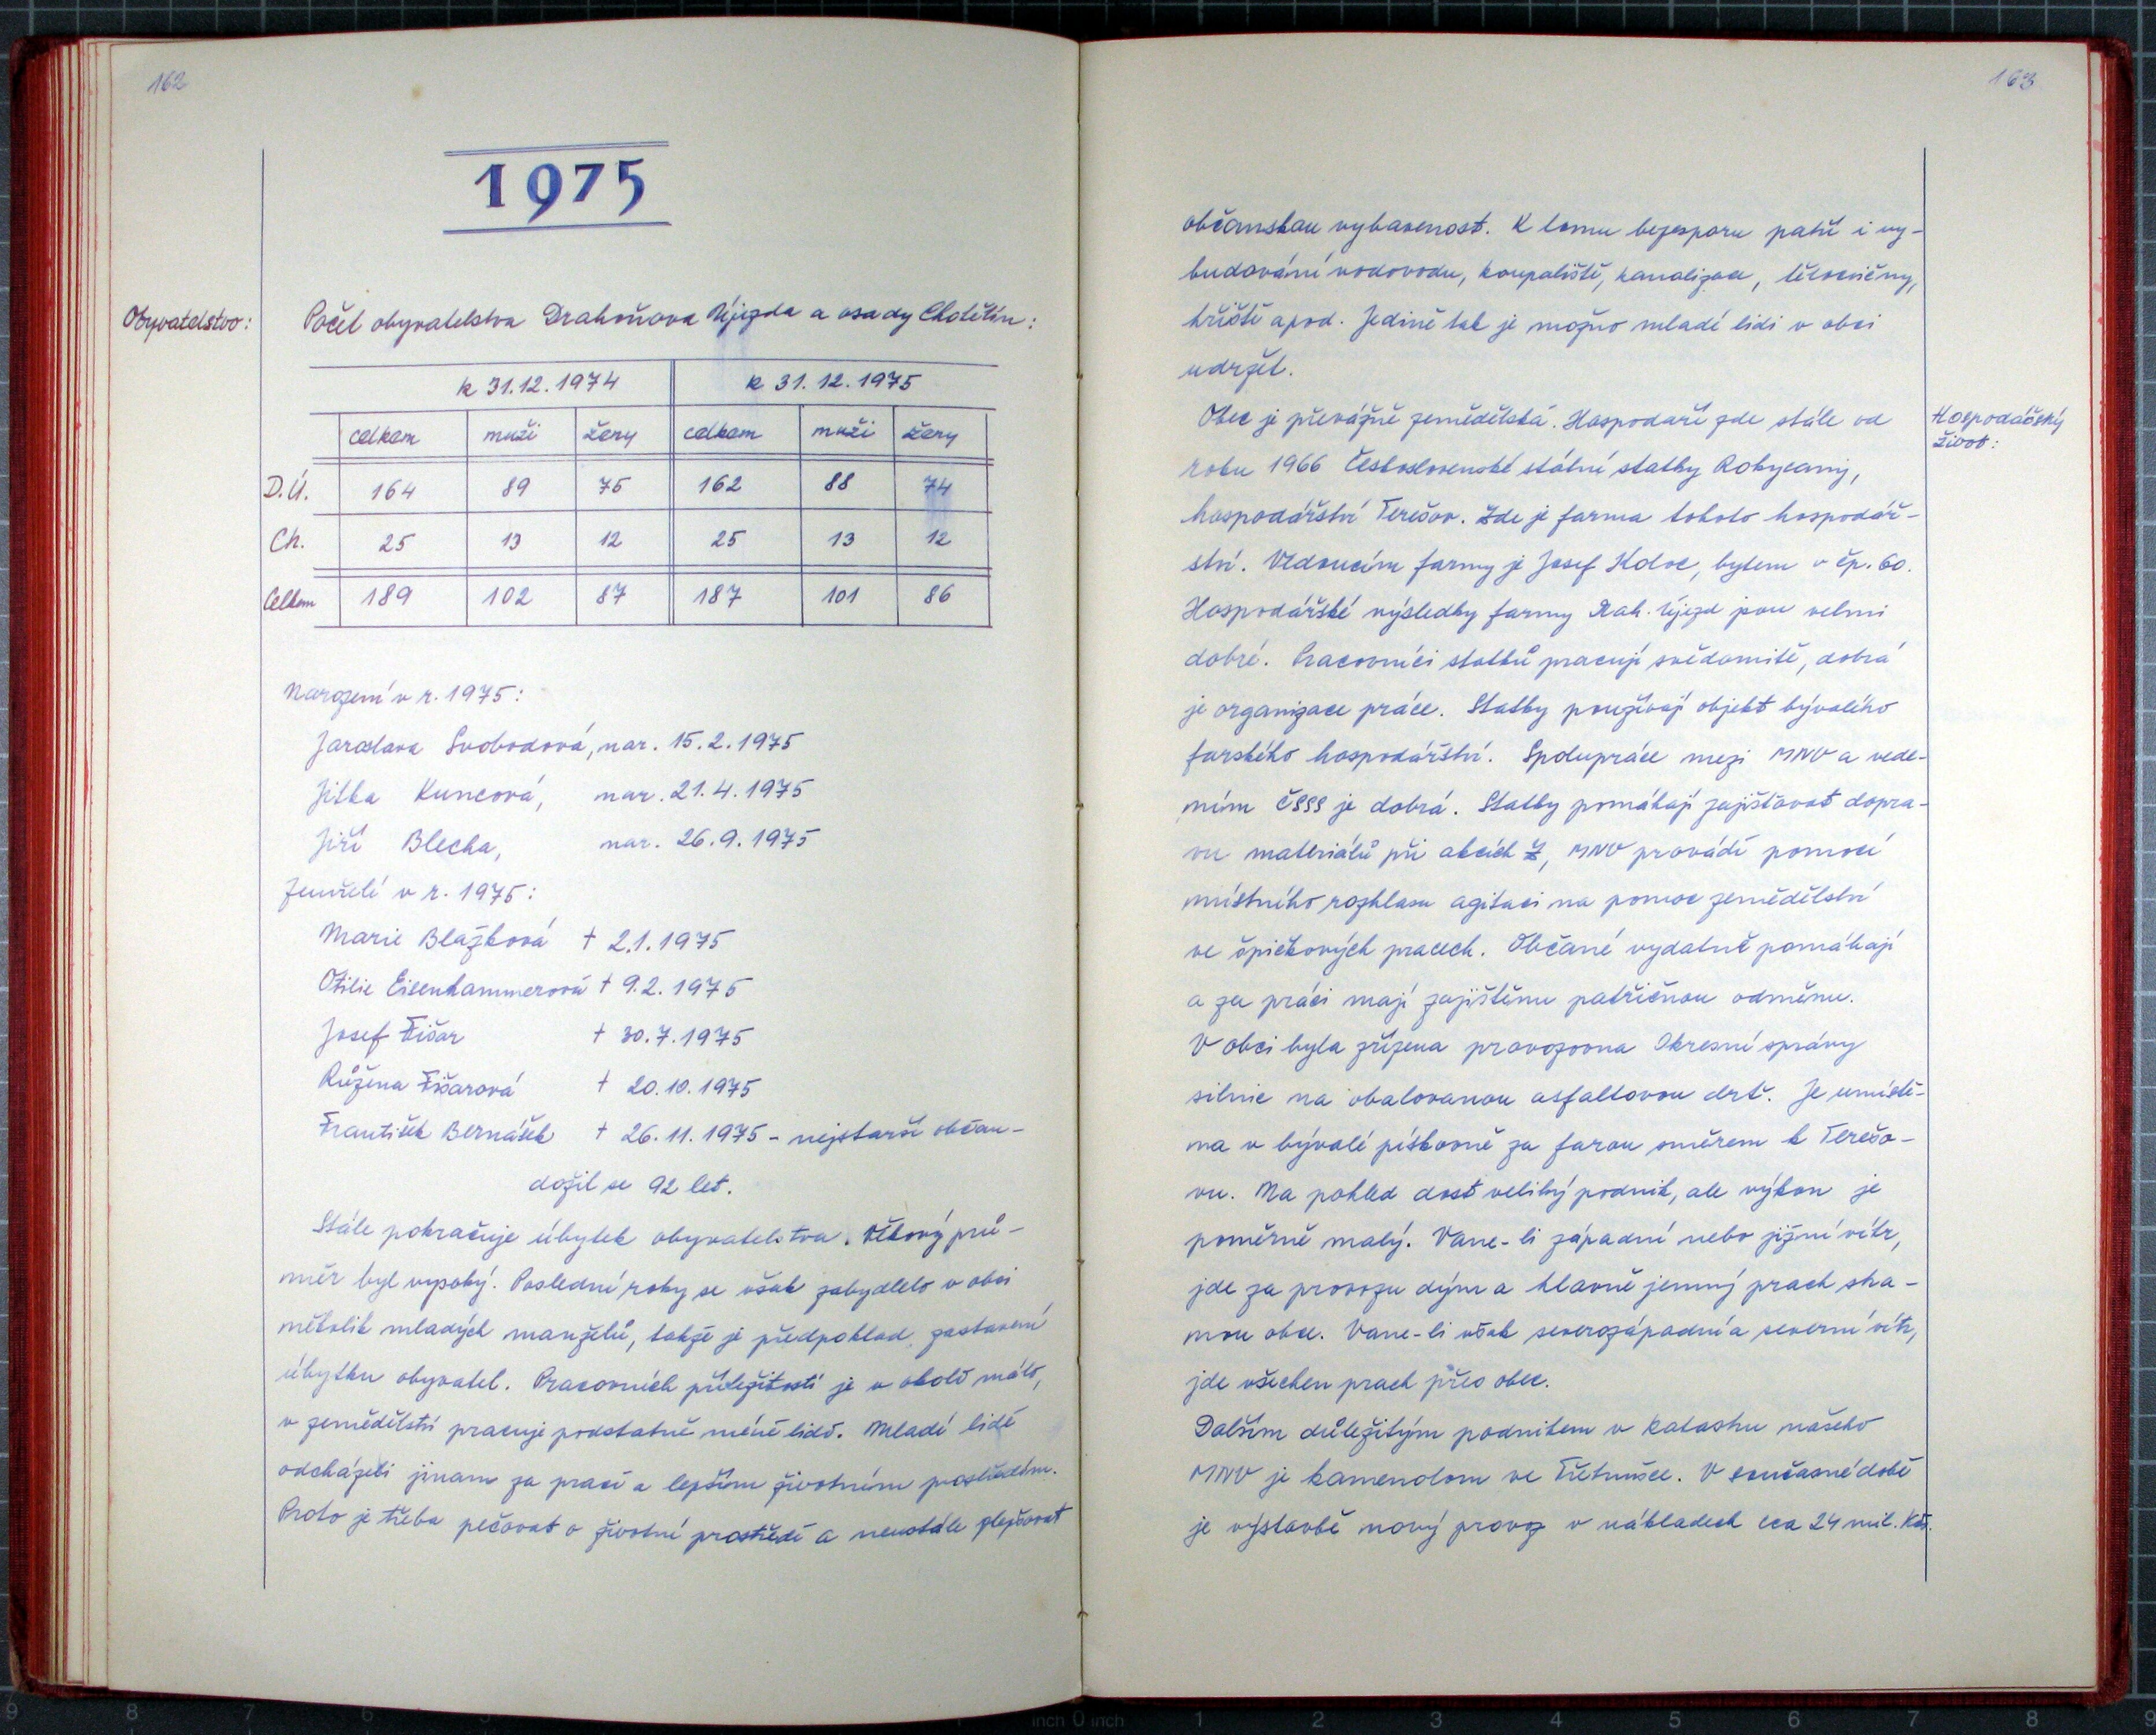 162
1975
Obyvatelstvo:
Počet obyvatelstva Drahoňova Újezda a osady Chotětín:
k 31.12.1974 k 31.12.1975
celkem muži ženy celkem muži ženy
D.Ú. 164 89 75 162 88 74
Ch. 25 13 12 25 13 12
Celkem 189 102 87 187 101 86
Narození v r. 1975:
Jaroslava Svobodová, nar. 15.2.1975
Jitka Kuncová, nar. 21.4.1975
Jiří Blecha, nar. 26.9.1975
Zemřelí v r. 1975:
Marie Blažková † 2.1.1975
Otilie Eisenhammerová † 9.2.1975
Josef Fišar † 30.7.1975
Růžena Fišarová † 20.10.1975
František Bernášek † 26.11.1975 - nejstarší občan -
dožil se 92 let.
Stále pokračuje úbytek obyvatelstva. Věkový prů-
měr byl vysoký. Poslední roky se však zabydlelo v obci
několik mladých manželů, takže je předpoklad zastavení
úbytku obyvatel. Pracovních příležitostí je v okolí málo,
v zemědělství pracuje podstatně méně lidí. Mladí lidé
odcházeli jinam za prací a lepším životním prostředím.
Proto je třeba pečovat o životní prostředí a neustále zlepšovat
163
občanskou vybavenost. K tomu bezesporu patří i vy-
budování vodovodu, koupaliště, kanalizace, tělocvičny,
hřiště apod. Jedině tak je možno mladé lidi v obci
udržet.
Hospodářský
život:
Obec je převážně zemědělská. Hospodaří zde stále od
roku 1966 Československé státní statky Rokycany,
hospodářství Terešov. Zde je farma tohoto hospodář-
ství. Vedoucím farmy je Josef Koloc, bytem v čp. 60.
Hospodářské výsledky farmy Drah. Újezd jsou velmi
dobré. Pracovníci statků pracují svědomitě, dobrá
je organizace práce. Statky používají objekt bývalého
farského hospodářství. Spolupráce mezi MNV a vede-
ním ČSSS je dobrá. Statky pomáhají zajišťovat dopra-
vu materiálů při akcích Z, MNV provádí pomocí
místního rozhlasu agitaci na pomoc zemědělství
ve špičkových pracech. Občané vydatně pomáhají
a za práci mají zajištěnu patřičnou odměnu.
V obci byla zřízena provozovna Okresní správy
silnic na obalovanou asfaltovou drť. Je umístě-
na v bývalé pískovně za farou směrem k Terešo-
vu. Na pohled dost veliký podnik, ale výkon je
poměrně malý. Vane-li západní nebo jižní vítr,
jde za provozu dým a hlavně jemný prach stra-
nou obce. Vane-li však severozápadní a severní vítr,
jde všechen prach přes obec.
Dalším důležitým podnikem v katastru našeho
MNV je kamenolom ve Třetnišce. V současné době
je výstavbě nový provoz v nákladech cca 24 mil. Kčs.